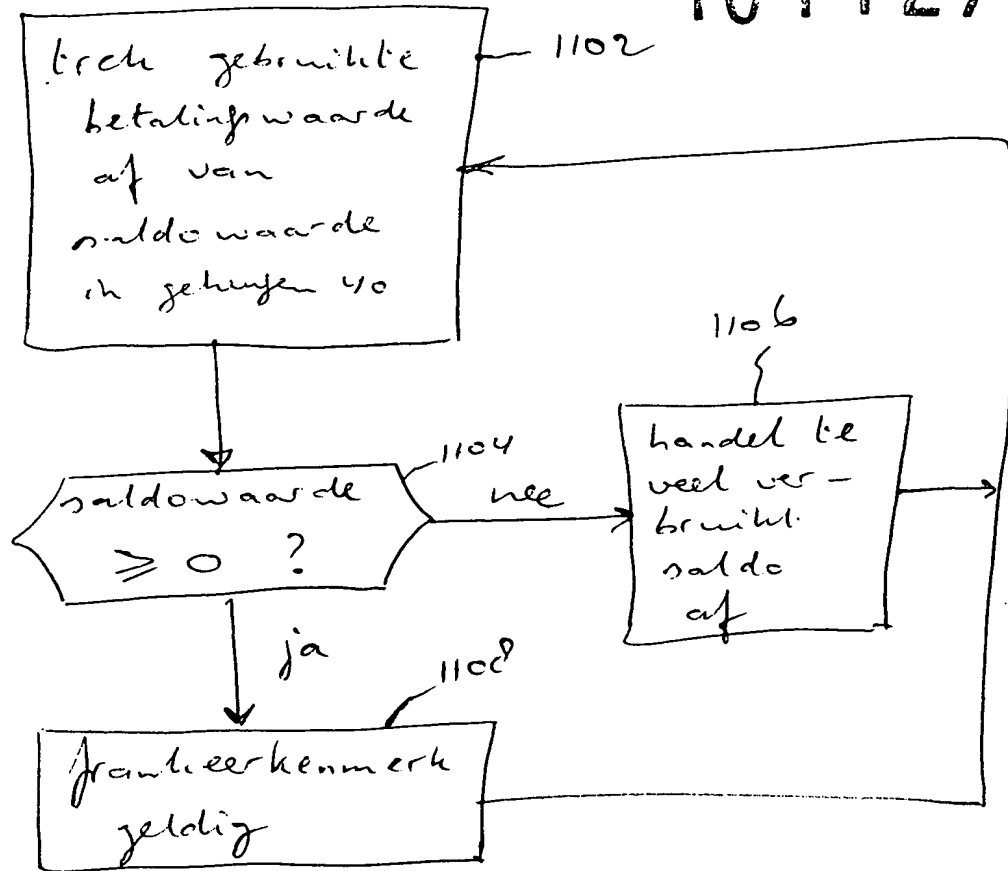 1102
trek gebruikte
betalingswaarde
af van
saldowaarde
in geheugen 40
1104
saldowaarde
≥ 0 ?
nee
1106
handel te
veel ver-
bruikt
saldo
af
ja
1108
frankeerkenmerk
geldig